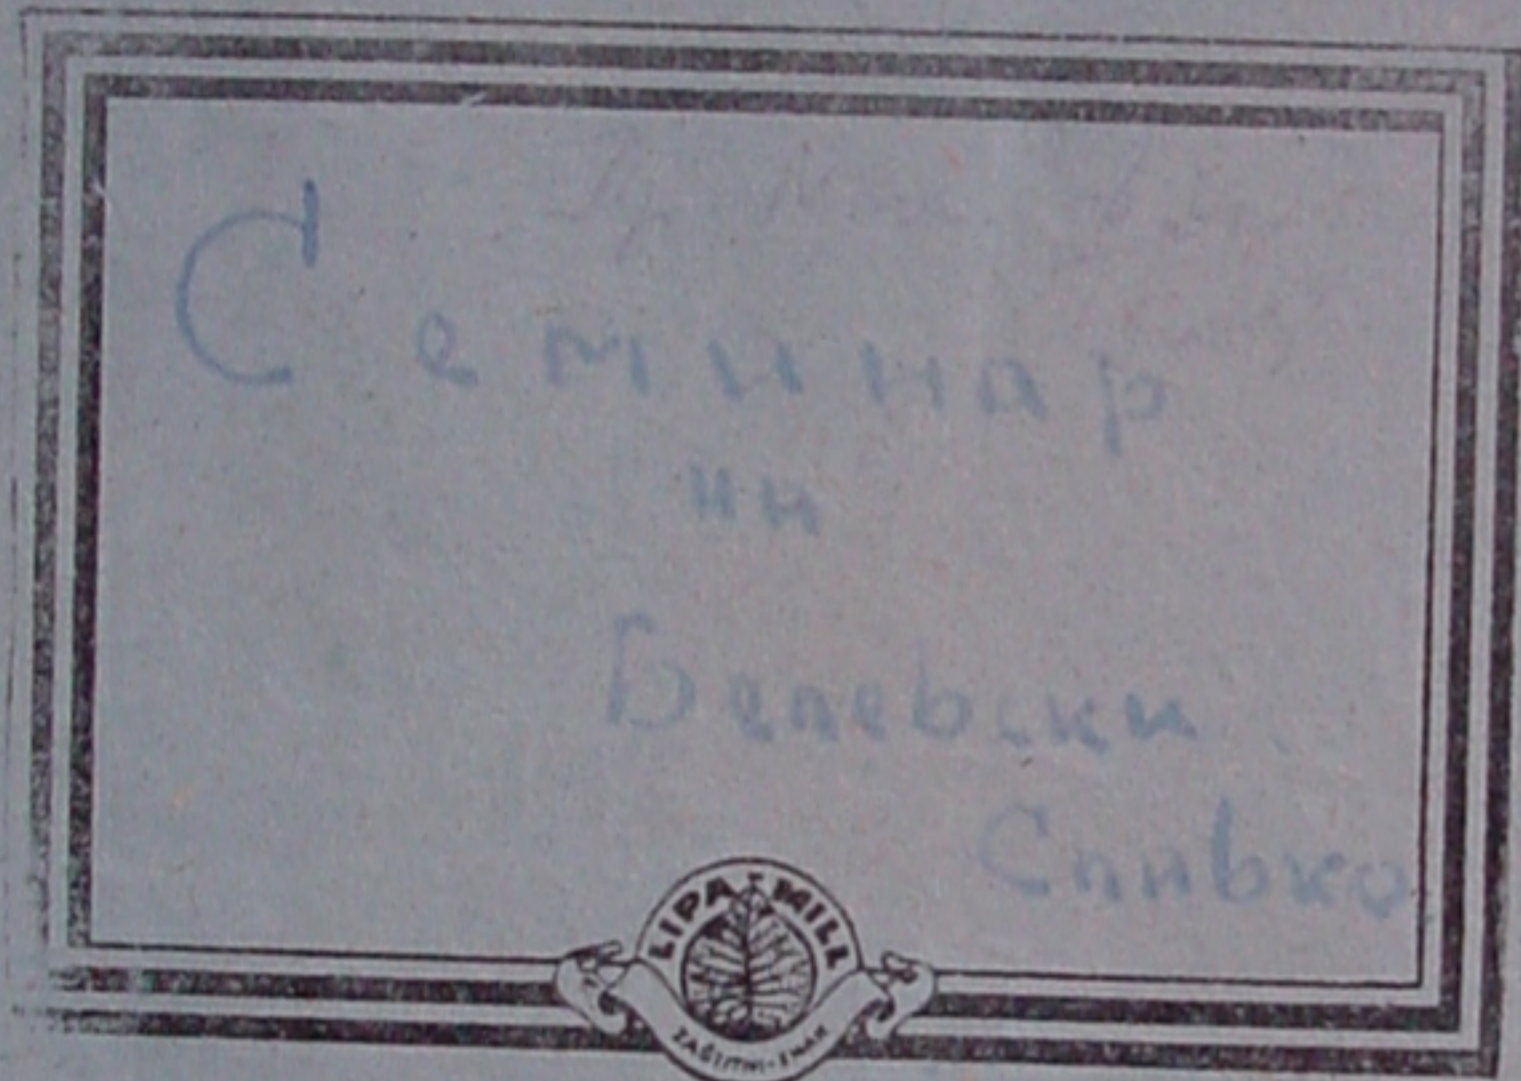 Семинар
на
Белевски
Славко
LIPA-MILL
ZAŠTITNI-ZNAK